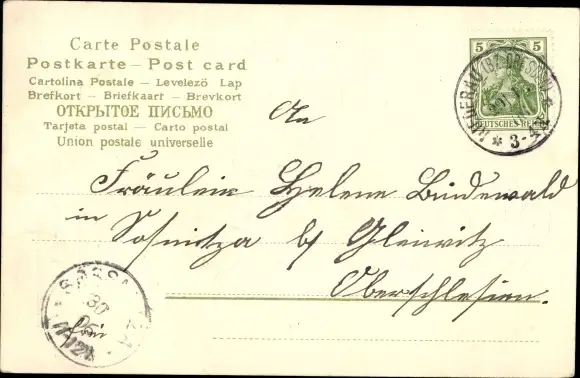 Carte Postale
Postkarte – Post card
Cartolina Postale – Levelezö Lap
Brefkort – Briefkaart – Brevkort
ОТКРЫТОЕ ПИСЬМО
Tarjeta postal – Carto postal
Union postale universelle
5 5
DEUTSCHES REICH
(BZ. DRESDEN)
* 3-4
An
Fräulein Helene Bindewald
in Sosnitza b/ Gleiwitz
Oberschlesien.
30
frei